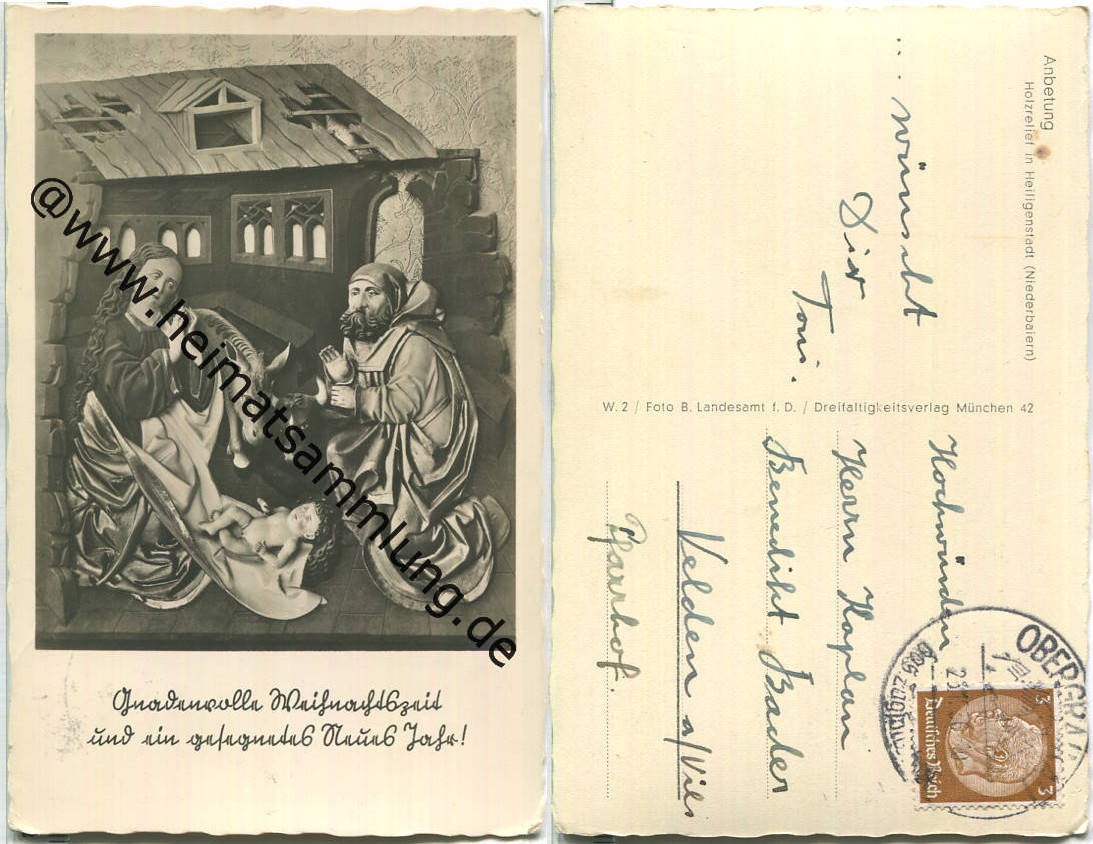 @www.heimatsammlung.de
Gnadenvolle Weihnachtszeit
und ein gesegnetes Neues Jahr!
Anbetung
Holzrelief in Heiligenstadt (Niederbaiern)
... wünscht
Dir
Toni.
W. 2 / Foto B. Landesamt f. D. / Dreifaltigkeitsverlag München 42
Hochwürden
Herrn Kaplan
Benedikt Bader
Velden a/Vils
Pfarrhof.
OBERGRA
Deutsches Reich
3
3